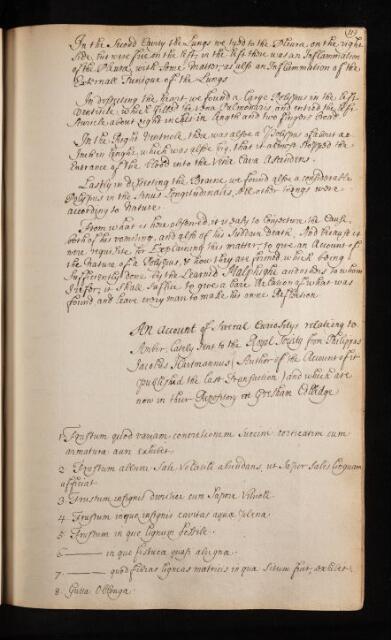 119
In the Second Cavity the Lungs we tyed to the Pleura, on the right
side, but were free on the left, in the left there was an Inflammation
of the Pleura, with some matter, as also an Inflammation of the
Externall Tunique of the Lungs
In dissecting the heart, we found a Large Polypus in the left
Ventricle, which filled the Vena Pulmonaris and entred the left
Auricle about eight inches in length and two fingers broad
In the Right Ventricle, there was also a Polypus of about an
Inches in lenght, which was also big, that it almost stopped the
Entrance of the blood into the Vena Cava Ascendens.
Lastly in dissecting the Braine, we found also a considerable
Polypus in the Sinus Longitudinales, All other things were
according to Nature
From what is here observed, it is easy to conjecture the Cause,
both of his vomiting, and also of his Sudden Death. And though it is
more requisite for Explaining this matter, to give an Account of
the Nature of a Polypus, & how they are formed which being
sufficiently done by the Learned Malphighi and others to whom
I refer, it shall suffice to give a bare Relation of what was
found and leave every man to make his owne Reflection
An Account of Several Curiositys relating to
Amber, Lately sent to the Royal Society from Philippus
Jacobus Hartmannus (Author of the Account of it
published the last Transaction) and which are
now in their Repository at Gresham Colledge
1 Frustum quod variam concretionem Succini corticatim cum
armatura aeri exhibet
2 Frustum album Sale Volatili abundans, ut Sapor Salis Linguam
afficiat
3 Frustum insignis duritiei cum Sapore Vitrioli
4 Frustum in quo insignis cavitas aqua plena
5 Frustum in quo lignum fossile
6 ——— in quo festuca quasi abiegna
7 ——— quod fibras ligneas matricis in qua situm fuit, exhibet
8 Gutta Oblonga